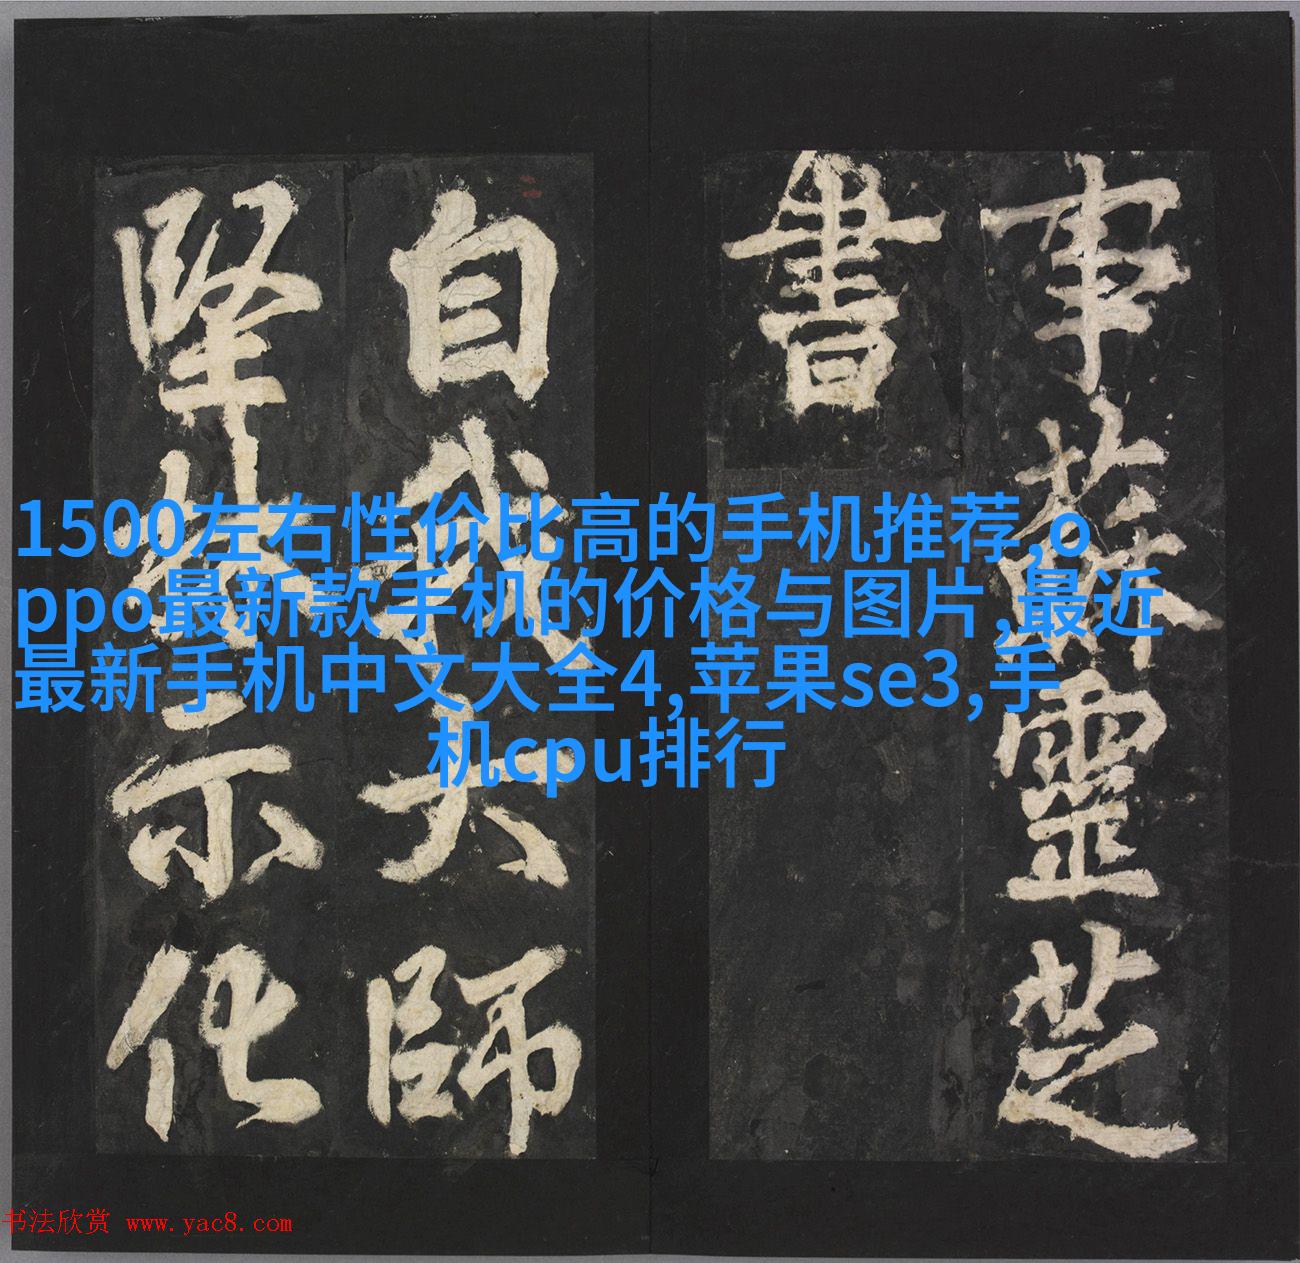 事蘇靈芝
書
自我大師
堅示化
1500左右性价比高的手机推荐,o
ppo最新款手机的价格与图片,最近
最新手机中文大全4,苹果se3,手
机cpu排行
书法欣赏 www.yac8.com